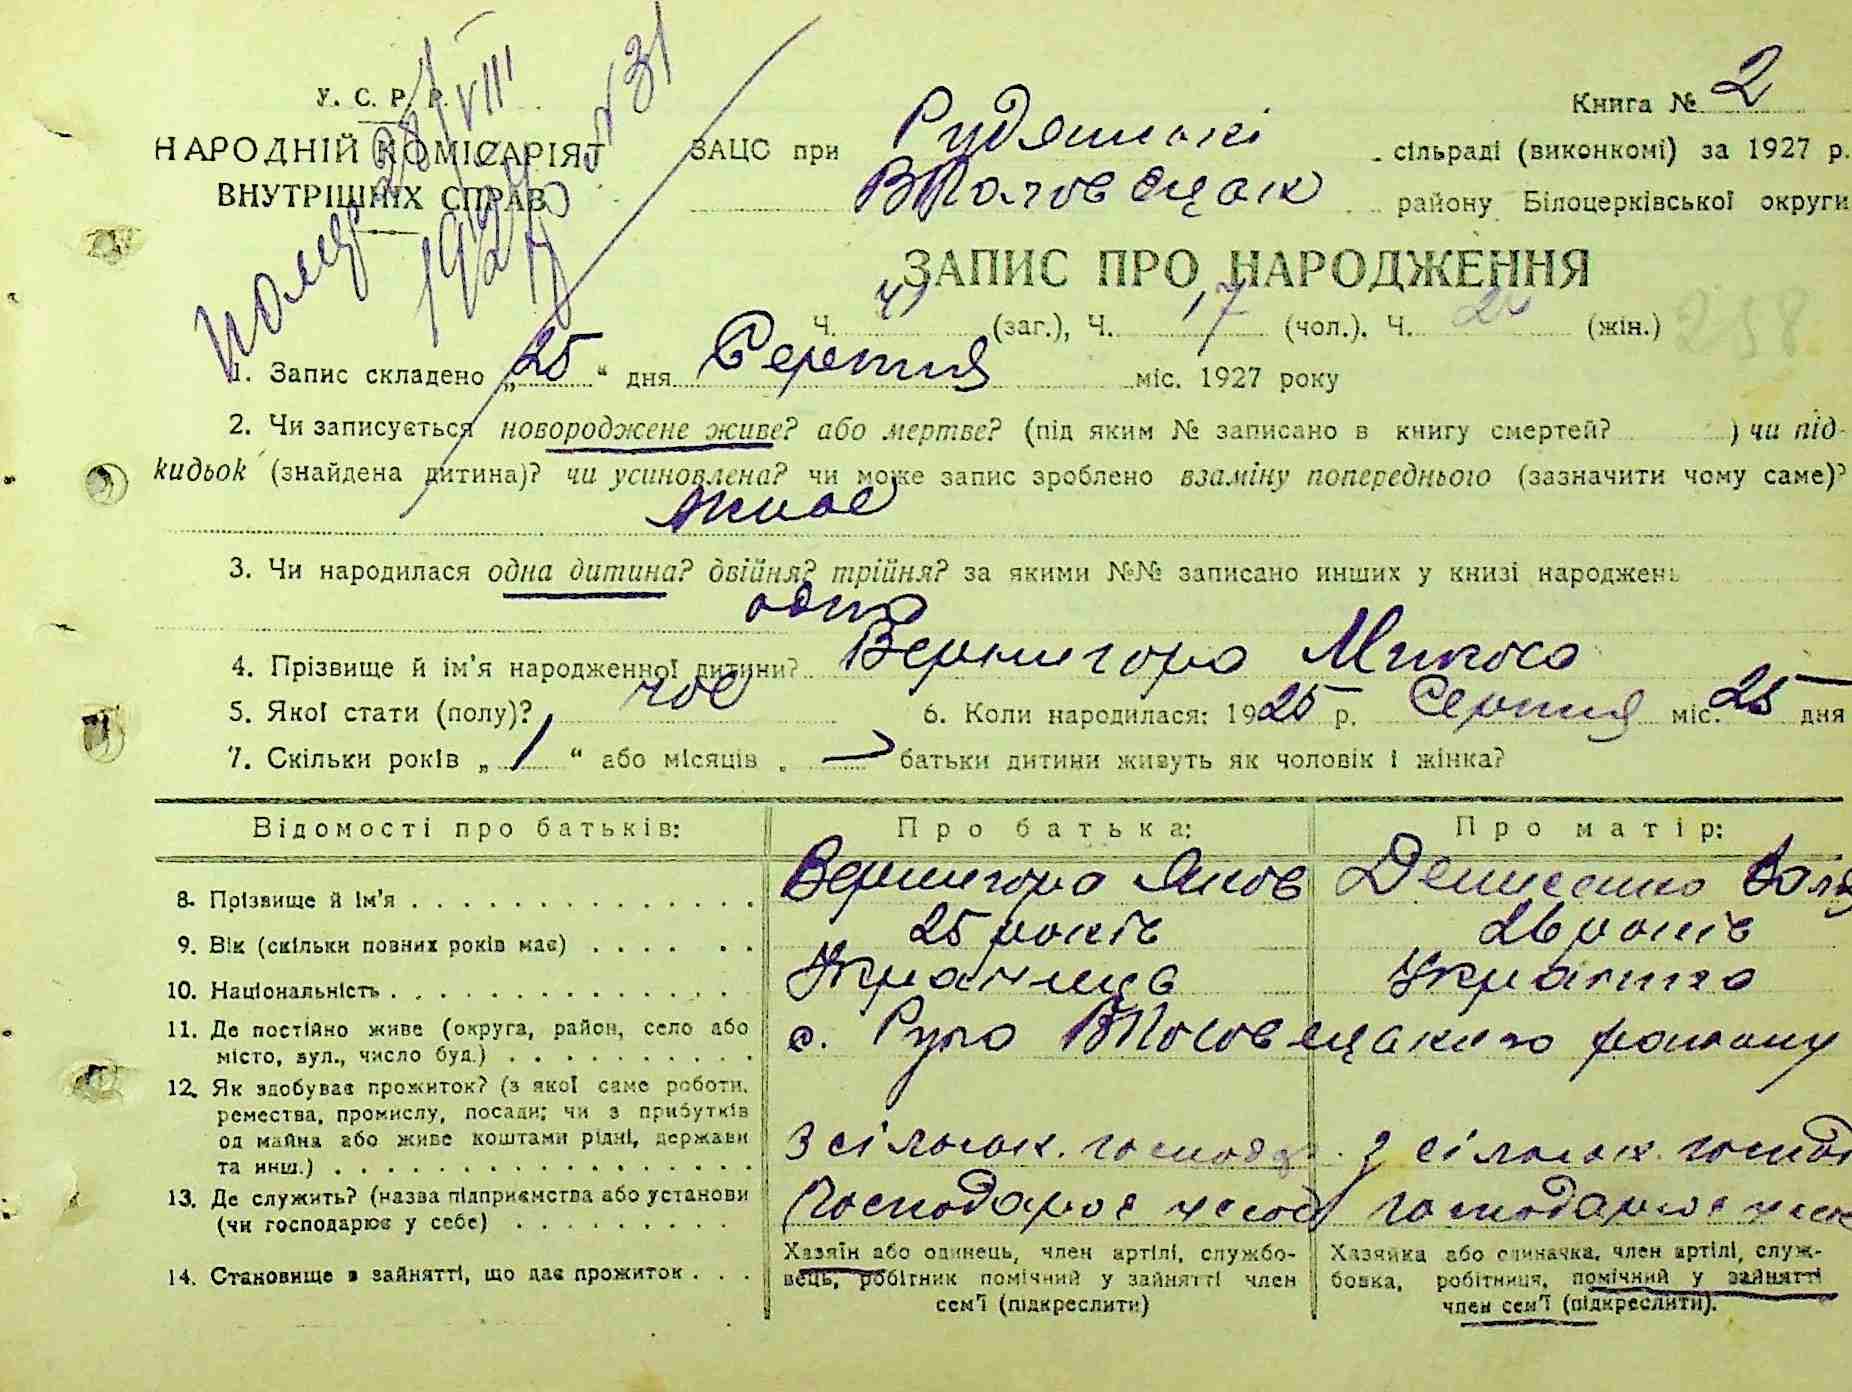 У. С. Р. Р.
НАРОДНІЙ КОМІСАРІЯТ
ВНУТРІШНІХ СПРАВ
помер 28/VIII 1927 р № 31
Книга № 2
ЗАЦС при Рудянські сільраді (виконкомі) за 1927 р.
ВПоловецьк району Білоцерківської округи
ЗАПИС ПРО НАРОДЖЕННЯ
Ч. 41 (заг.), Ч. 17 (чол.). Ч. 24 (жін.) 238
1. Запис складено „25“ дня Серпня міс. 1927 року
2. Чи записується новороджене живе? або мертве? (під яким № записано в книгу смертей? ) чи під-
кидьок (знайдена дитина)? чи усиновлена? чи може запис зроблено взаміну попереднього (зазначити чому саме)?
живе
3. Чи народилася одна дитина? двійня? трійня? за якими №№ записано инших у книзі народжень
одна
4. Прізвище й ім'я народженної дитини? Вернигора Микола
5. Якої стати (полу)? чол 6. Коли народилася: 1925 р. Серпня міс. 25 дня
7. Скільки років „ 1 “ або місяців „ — батьки дитини живуть як чоловік і жінка?
Відомості про батьків: Про батька: Про матір:
8. Прізвище й ім'я . . . Вернигора Яков Денисенко
9. Вік (скільки повних років має) . . . 25 років 26 років
10. Національність . . . Українець Українка
11. Де постійно живе (округа, район, село або
місто, вул., число буд.) . . . с. Руда ВПоловецького району
12. Як здобуває прожиток? (з якої саме роботи,
ремества, промислу, посади; чи з прибутків
од майна або живе коштами рідні, держави
та инш.) . . . З сільськ. господар. з сільськ. господ
13. Де служить? (назва підприємства або установи
(чи господарює у себе) . . . Господарює у себе господарює у себе
14. Становище в зайнятті, що дає прожиток . . .
Хазяїн або одинець, член артілі, службо-
вець, робітник помічний у зайнятті член
сем'ї (підкреслити)
Хазяйка або одиначка, член артілі, служ-
бовка, робітниця, помічний у зайнятті
член сем'ї (підкреслити).